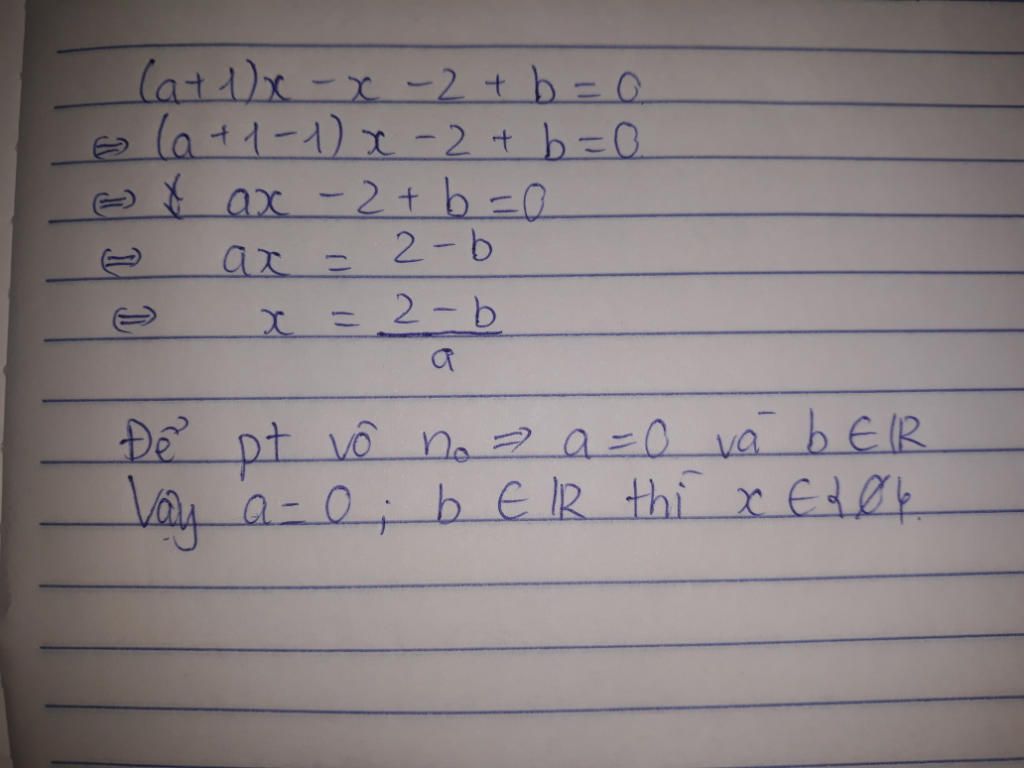 (a+1)x - x - 2 + b = 0
⇔ (a+1-1) x - 2 + b = 0
⇔ ax - 2 + b = 0
⇔ ax = 2 - b
⇔ x = \frac{2 - b}{a}
Để pt vô n₀ ⇒ a = 0 và b ∈ ℝ
Vậy a = 0 ; b ∈ ℝ thì x ∈ {∅}.